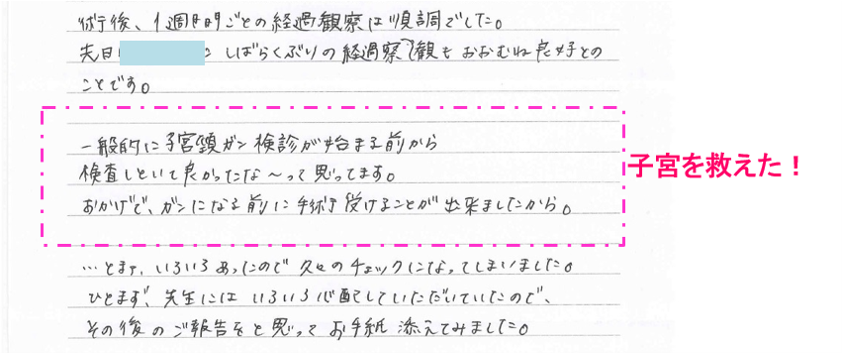 術後、1週間ごとの経過観察は順調でした。
先日 しばらくぶりの経過察観もおおむね良好との
ことです。
一般的に子宮頸ガン検診が始まる前から
検査しといて良かったな〜って思ってます。
おかげで、ガンになる前に手術受けることが出来ましたから。
子宮を救えた！
…とまあ、いろいろあったので久々のチェックになってしまいました。
ひとまず、先生にはいろいろ心配していただいていたので、
その後のご報告をと思ってお手紙添えてみました。